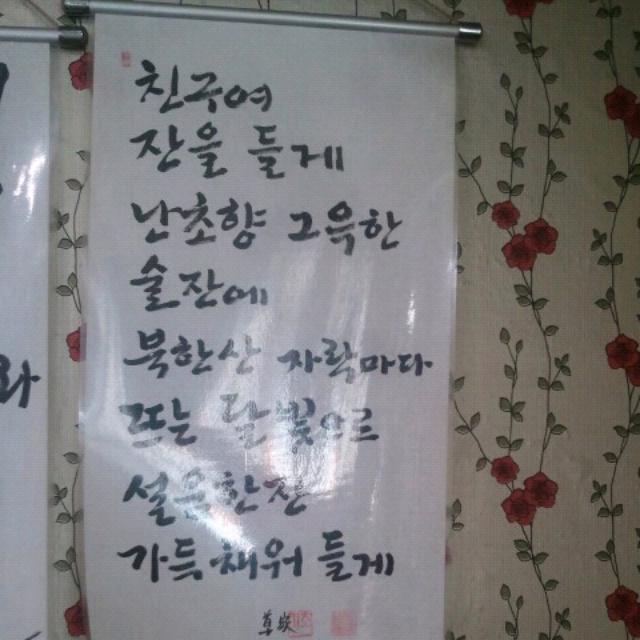 친구여
잔을 들게
난초향 그윽한
술잔에
북한산 자락마다
뜨는 달빛으로
설움 한 잔
가득 채워 들게
와